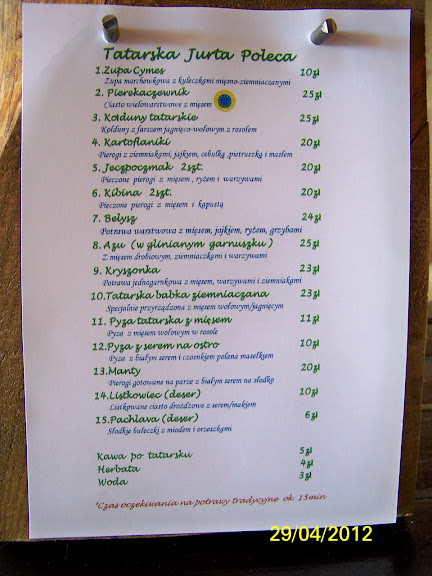 Tatarska Jurta Poleca
1.Zupa Cymes 10zł
Zupa marchewkowa z kuleczkami mięsno-ziemniaczanymi
2. Pierekaczewnik 25zł
Ciasto wielowarstwowe z mięsem
3. Kołduny tatarskie 25zł
Kołduny z farszem jagnięco-wołowym z rosołem
4. Kartoflaniki 20zł
Pierogi z ziemniakami, jajkiem, cebulką ,pietruszką i masłem
5. Jeczpoczmak 2szt. 20zł
Pieczone pierogi z mięsem , ryżem i warzywami
6. Kibina 2szt. 20zł
Pieczone pierogi z mięsem i kapustą
7. Bełysz 24zł
Potrawa warstwowa z mięsem, jajkiem, ryżem, grzybami
8. Azu (w glinianym garnuszku) 25zł
Z mięsem drobiowym, ziemniaczkami i warzywami
9. Kryszonka 23zł
Potrawa jednogarnkowa z mięsem, warzywami i ziemniakami
10.Tatarska babka ziemniaczana 23zł
Specjalnie przyrządzona z mięsem wołowym/jagnięcym
11. Pyza tatarska z mięsem 11zł
Pyza z mięsem wołowym w rosole
12.Pyza z serem na ostro 10zł
Pyza z białym serem i czosnkiem polana masełkiem
13.Manty 20zł
Pierogi gotowane na parze z białym serem na słodko
14.Listkowiec (deser) 10zł
Listkowane ciasto drożdżowe z serem/makiem
15.Pachlava (deser) 6zł
Słodkie bułeczki z miodem i orzeszkami
Kawa po tatarsku 5zł
Herbata 4zł
Woda 3zł
*Czas oczekiwania na potrawy tradycyjne ok. 15min
29/04/2012